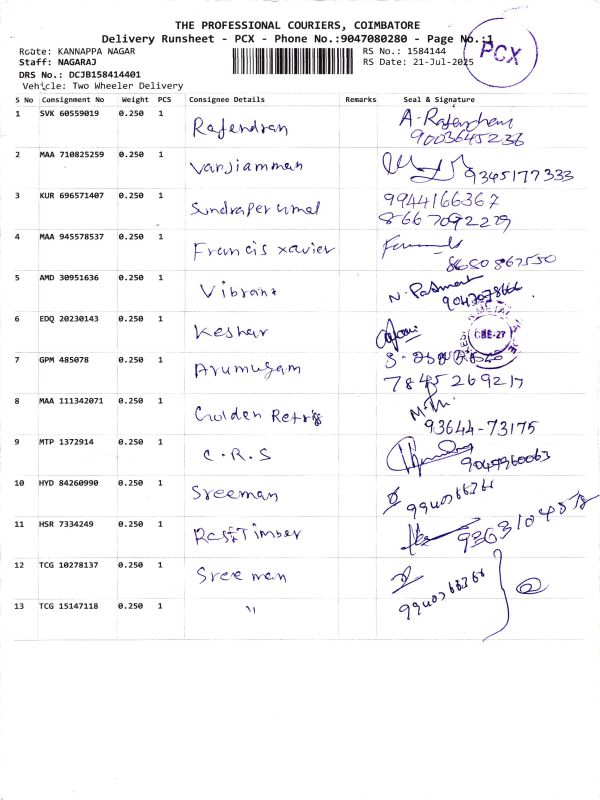 THE PROFESSIONAL COURIERS, COIMBATORE
Delivery Runsheet - PCX - Phone No.:9047080280 - Page No.:1
PCX
Route: KANNAPPA NAGAR
RS No.: 1584144
Staff: NAGARAJ
RS Date: 21-Jul-2025
DRS No.: DCJB158414401
Vehicle: Two Wheeler Delivery
S No Consignment No Weight PCS Consignee Details Remarks Seal & Signature
1 SVK 60559019 0.250 1 Rajendran
9003645236
2 MAA 710825259 0.250 1 Vanjiamman 9345177333
3 KUR 696571407 0.250 1 Sundraperumal 9944166367
8667092229
4 MAA 945578537 0.250 1 Francis xavier
8680867550
5 AMD 30951636 0.250 1 Vibrant
6 EDQ 20230143 0.250 1 Keshav CBE-27
7 GPM 485078 0.250 1 Arumugam
7845269217
8 MAA 111342071 0.250 1 Golden
93644-73175
9 MTP 1372914 0.250 1 C.R.S
10 HYD 84260990 0.250 1 Sreeman
11 HSR 7334249 0.250 1 Timber
12 TCG 10278137 0.250 1 Sreeman
13 TCG 15147118 0.250 1 "